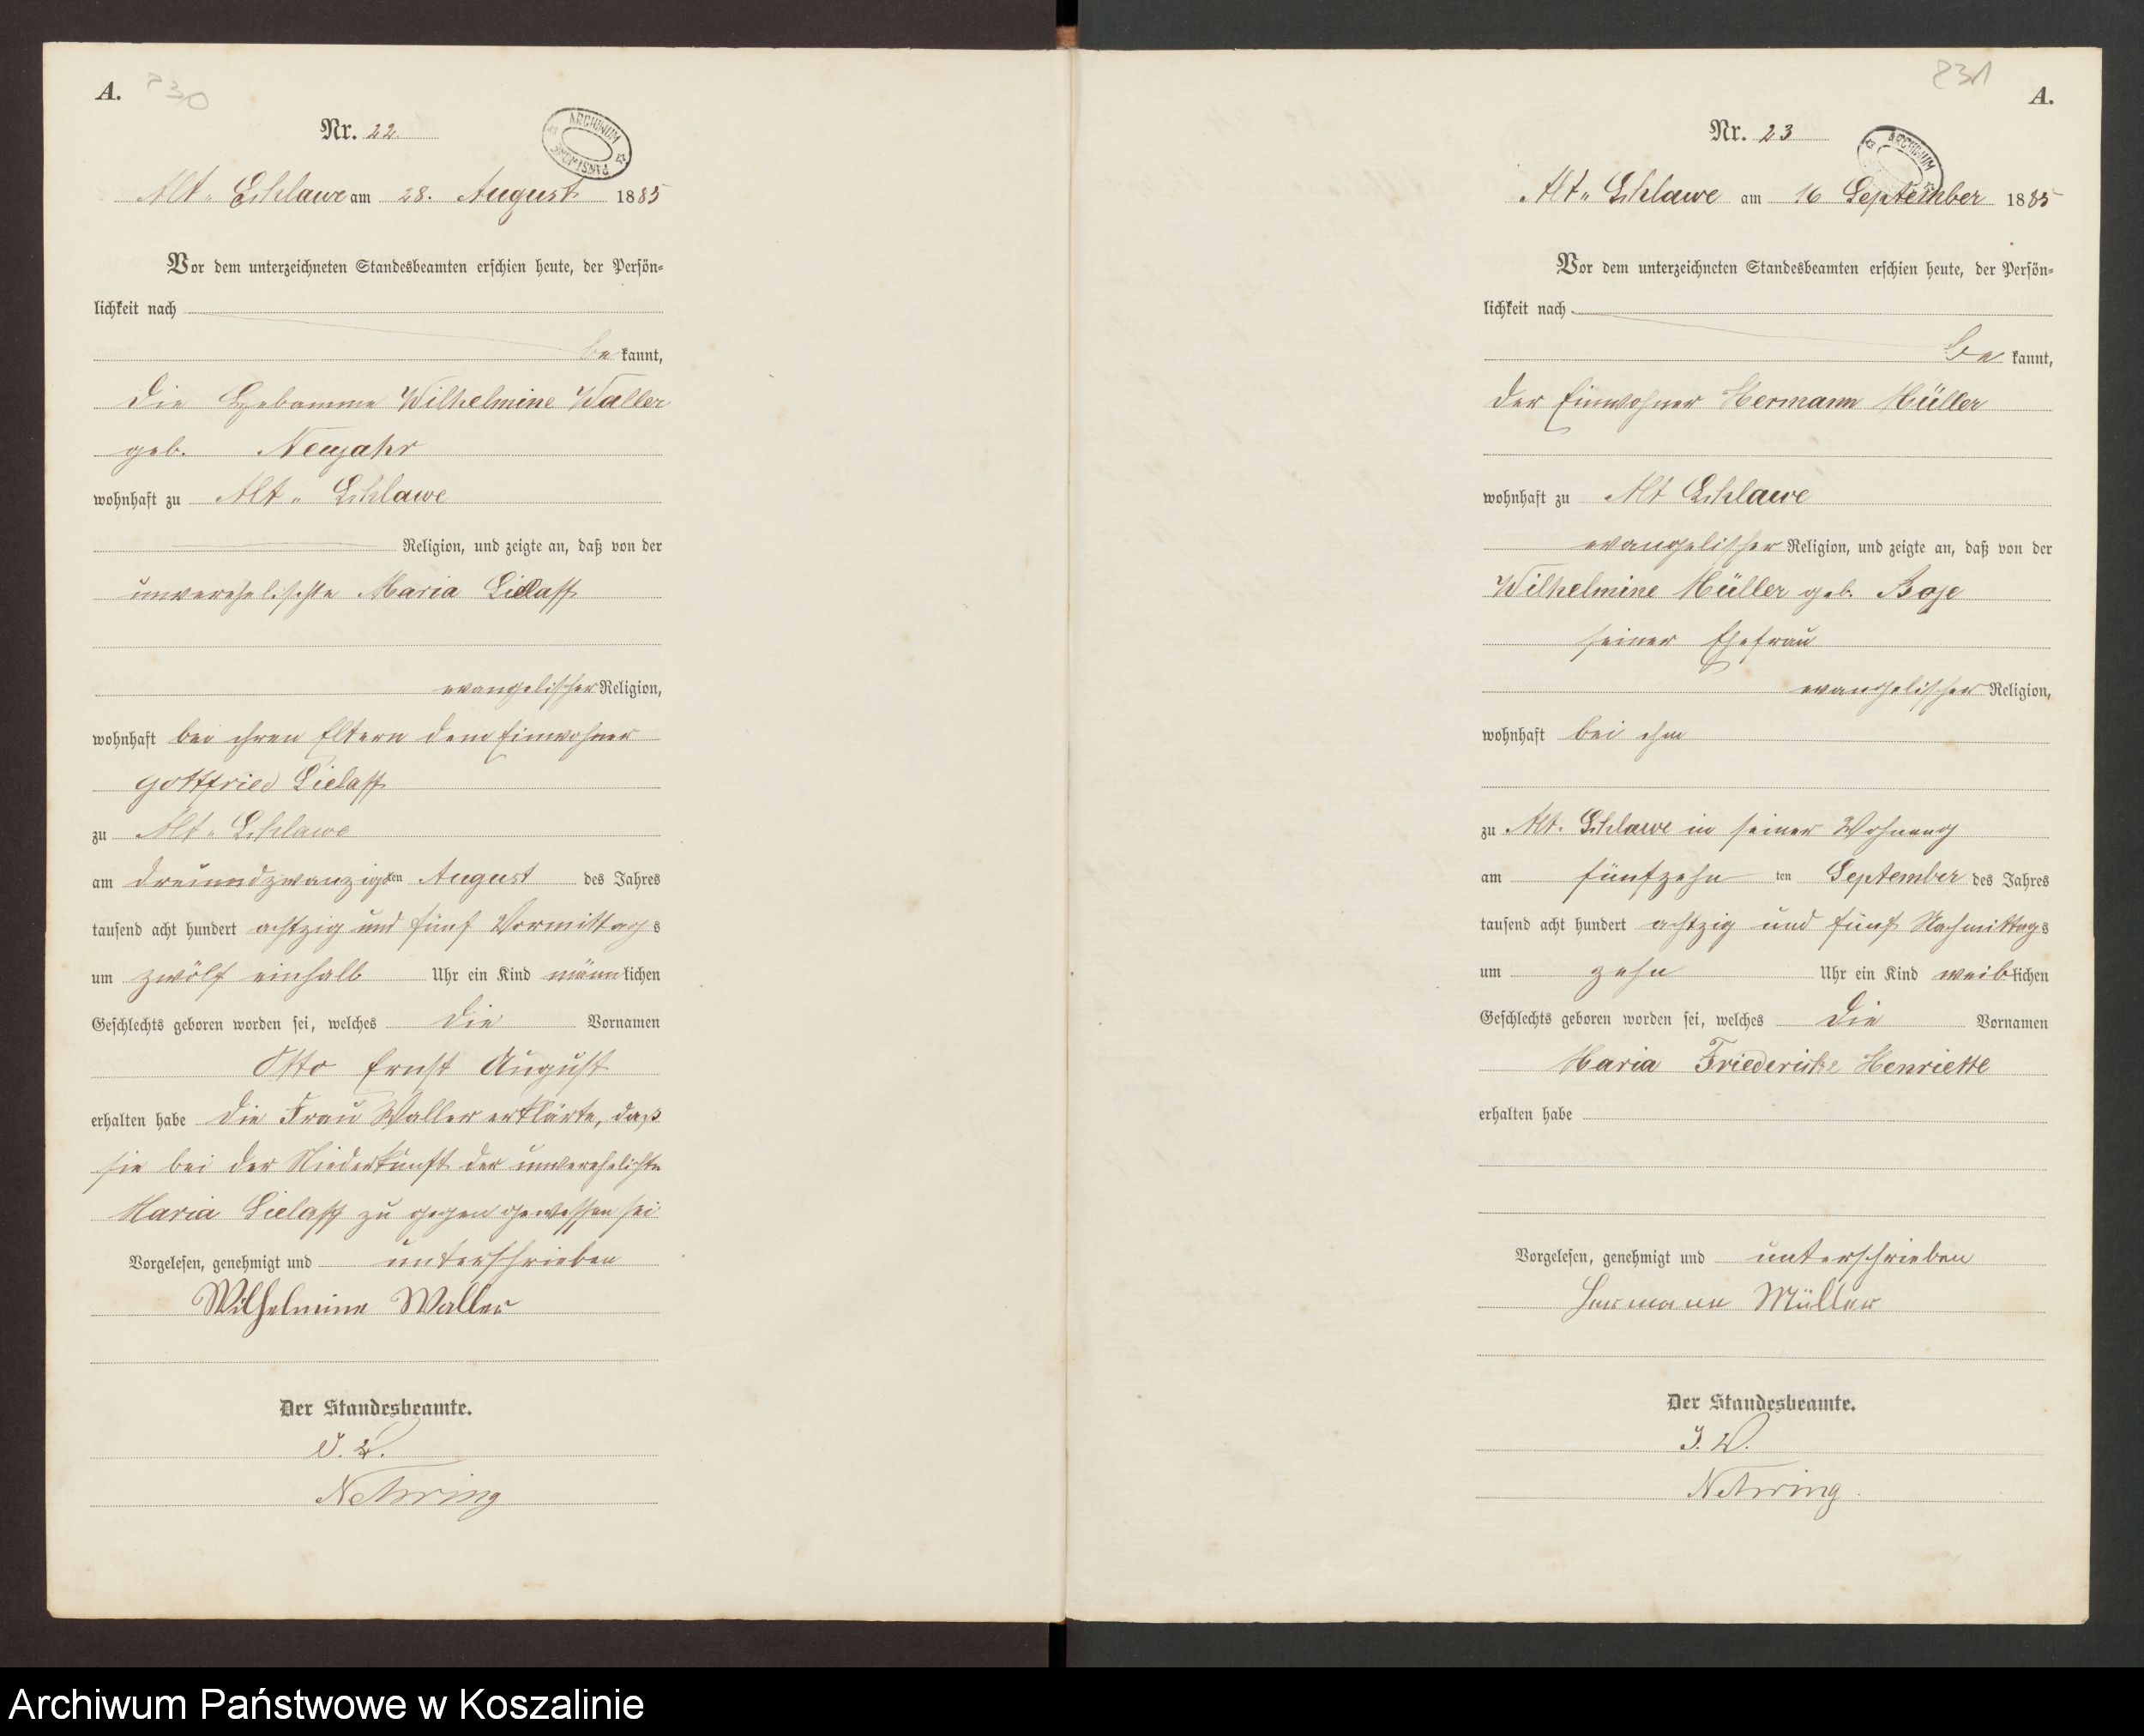 A. 230
Nr. 22
ARCHIWUM PAŃSTWOWE
Alt-Schlawe am 28. August 1885
Vor dem unterzeichneten Standesbeamten erschien heute, der Persön-
lichkeit nach
be kannt,
die Hebamme Wilhelmine Waller
geb. Neujahr
wohnhaft zu Alt-Schlawe
Religion, und zeigte an, daß von der
unverehelichte Maria Sielaff
evangelischer Religion,
wohnhaft bei ihren Eltern dem Einwohner
Gottfried Sielaff
zu Alt-Schlawe
am dreiundzwanzigsten August des Jahres
tausend acht hundert achtzig und fünf Vormittags
um zwölf einhalb Uhr ein Kind männlichen
Geschlechts geboren worden sei, welches die Vornamen
Otto Ernst August
erhalten habe die Frau Waller erklärte, daß
sie bei der Niederkunft der unverehelichte
Maria Sielaff zu gegen gewessen sei
Vorgelesen, genehmigt und unterschrieben
Wilhelmine Waller
Der Standesbeamte.
J. V.
Nehring
231 A.
Nr. 23
ARCHIWUM
Alt-Schlawe am 16 September 1885
Vor dem unterzeichneten Standesbeamten erschien heute, der Persön-
lichkeit nach
be kannt,
der Einwohner Hermann Müller
wohnhaft zu Alt Schlawe
evangelischer Religion, und zeigte an, daß von der
Wilhelmine Müller geb. Boje
seiner Ehefrau
evangelischer Religion,
wohnhaft bei ihm
zu Alt-Schlawe in seiner Wohnung
am fünfzehn ten September des Jahres
tausend acht hundert achtzig und fünf Nachmittags
um zehn Uhr ein Kind weiblichen
Geschlechts geboren worden sei, welches die Vornamen
Maria Friedericke Henriette
erhalten habe
Vorgelesen, genehmigt und unterschrieben
Hermann Müller
Der Standesbeamte.
J. V.
Nehring.
Archiwum Państwowe w Koszalinie